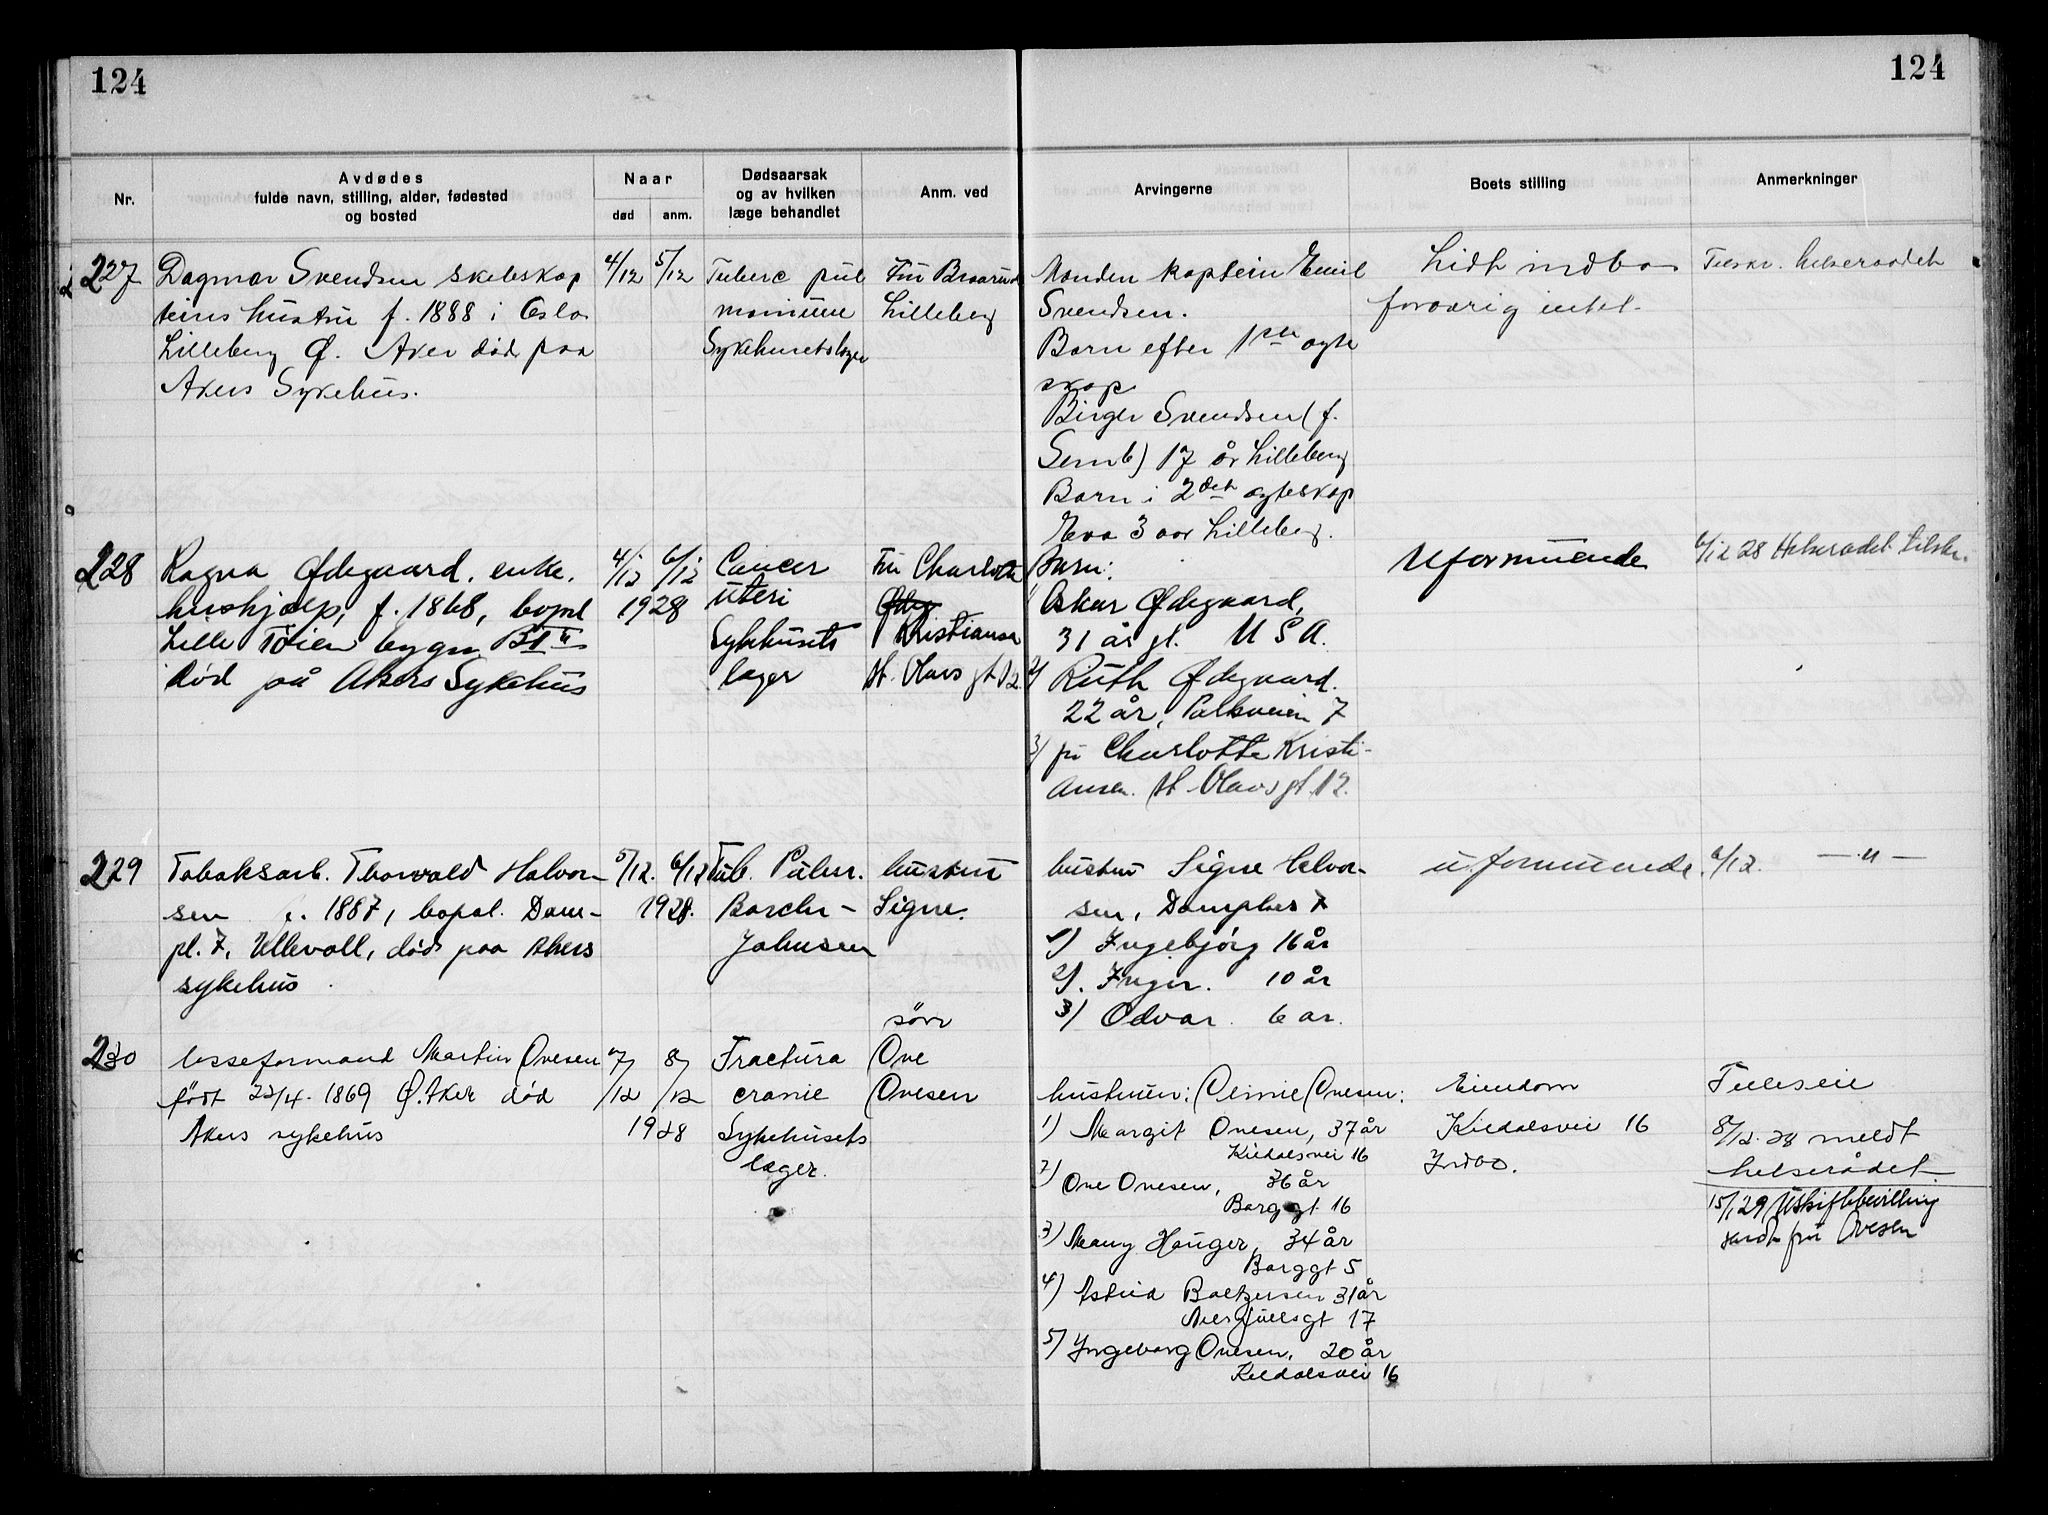 124
124
Nr.
Avdødes
fulde navn, stilling, alder, fødested
og bosted
Naar
død
anm.
Dødsaarsak
og av hvilken
læge behandlet
Anm. ved
Arvingerne
Boets stilling
Anmerkninger
227
Dagmar Svendsen skibskap
teins hustru f. 1888 i Oslo
Lilleberg Ø. Aker død paa
Akers Sykehus.
4/12
5/12
Tuberc pul
monium
Sykehusets læger
Fru Braarud
Lilleberg
Manden kaptein Emil
Svendsen.
Barn efter 1ste egte
skap
Birger Svendsen (f.
Semb) 17 år Lilleberg
Barn i 2det egteskap
Eva 3 aar Lilleberg.
Lidt indbo
forøvrig intet.
Tilskr. helseraadet
228
Ragna Ødegaard. enke.
hushjælp, f. 1868, bopæl
Lille Tøien bygn.
død på Akers Sykehus
4/12
6/12
1928
Cancer
uteri
Sykehusets
læger
Fru Charlotte
Ødeg
Kristiansen
St. Olavs gt 12
Barn:
1) Oskar Ødegaard,
31 år gl. USA.
2) Ruth Ødegaard.
22 år, Parkveien 7
3) fru Charlotte Kristi-
ansen. St Olavs gt. 12.
Uformuende
6/12 28 Helserådet tilskr.
229
Tobaksarb. Thorvald Halvor-
sen f. 1887, bopæl. Dam-
pl. 7, Ullevoll, død paa Akers
sykehus.
5/12.
6/12
1928.
Tub. Pulm.
Borchr-
Johnsen
hustru
Signe.
hustru Signe Halvor-
sen, Dampless 7
1) Ingebjörg 16 år
2). Inger. 10 år
3) Odvar. 6 ar.
uformuende.
6/12. —"—
230
Losseformand Martin Ovesen
födt 22/4. 1869 Ø. Aker död
Akers sykehus
7/12
8/12
1928
Fractura
cranie
Sykehusets
læger.
sönn
Ove
Ovesen
hustruen: Ovesen:
1) Margit Ovesen, 37 år
Kildalsvei 16
2) Ove Ovesen, 36 år
Borggt 16
3) Many Hauger, 34 år
Borggt 5
4) Astrid Baltzersen 31 år
Niels Juelsgt 17
5) Ingeborg Ovesen, 20 år
Kildalsvei 16
Eiendom
Kildalsvei 16
Indbo.
Fuleseie
8/12. 28 meldt
helserådet.
15/1 29 Uskiftebevilling
sendt fru Ovesen